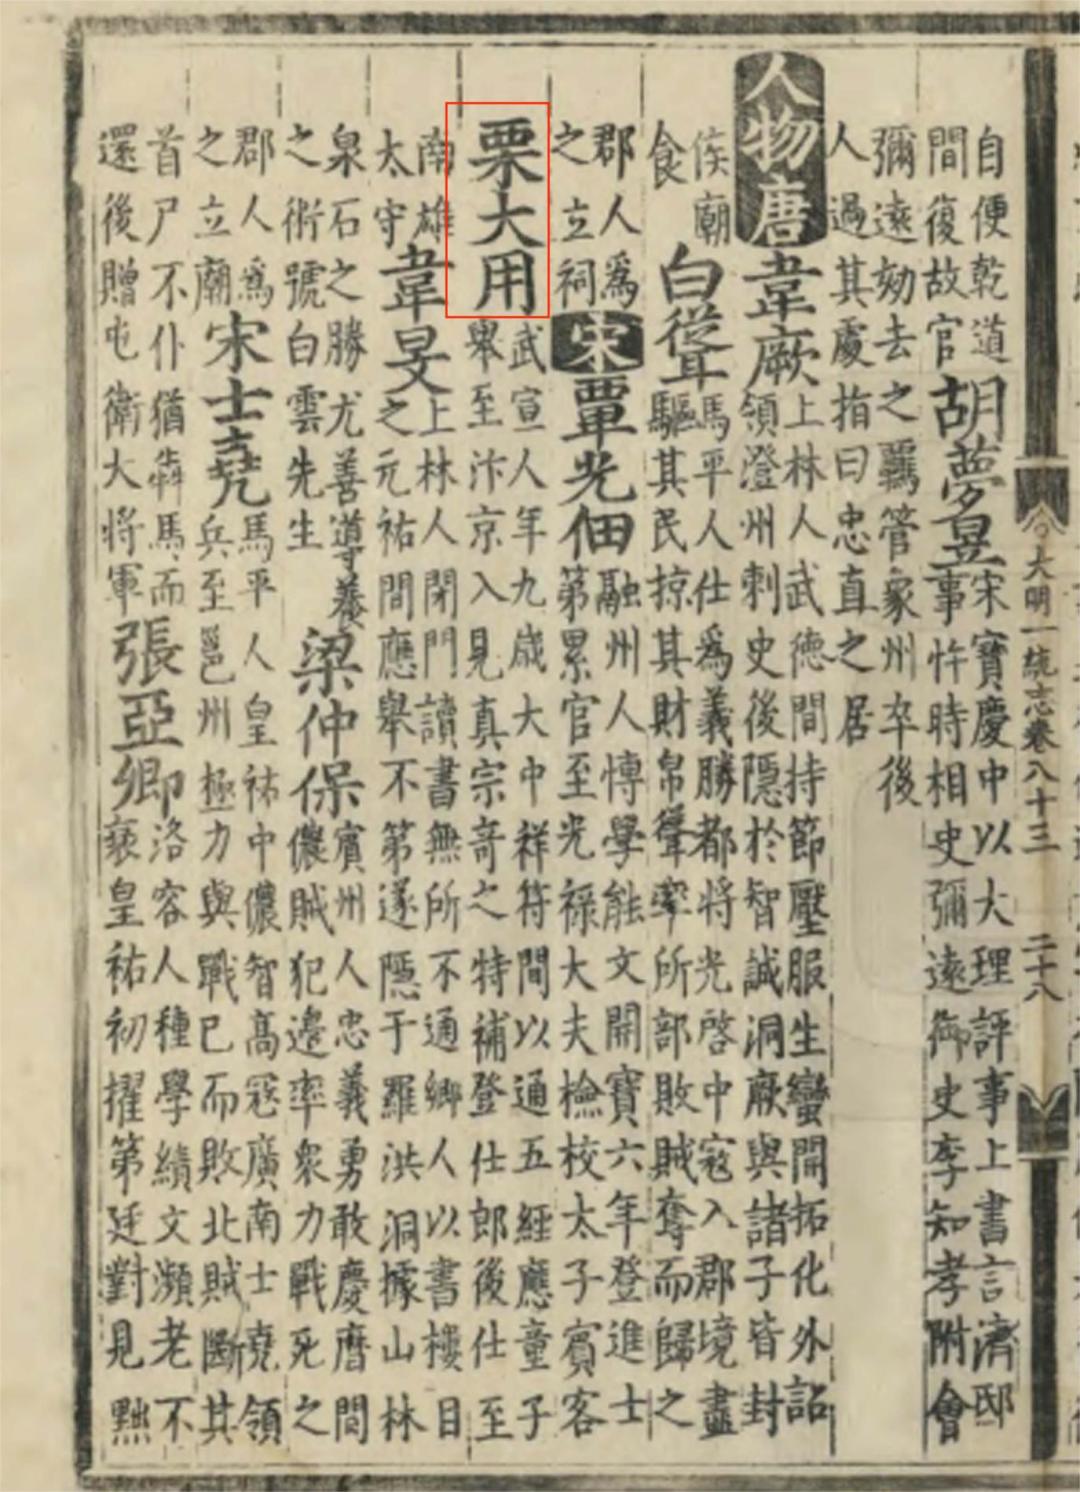 大明一統志卷八十三 二十八
自便乾道
間復故官
胡夢昱
宋寶慶中以大理評事上書言濟邸
事忤時相史彌遠御史李知孝附會
彌遠劾去之羈管象州卒後
人過其處指曰忠直之居
人物唐
韋厥
上林人武德間持節壓服生蠻開拓化外詔
領澄州刺史後隱於智誠洞厥與諸子皆封
侯廟
食
白從聳
馬平人仕爲義勝都將光啓中寇入郡境盡
驅其民掠其財帛聳率所部敗賊奪而歸之
郡人爲
之立祠
宋
覃光佃
融州人慱學能文開寶六年登進士
第累官至光祿大夫檢校太子賓客
栗大用
武宣人年九歲大中祥符間以通五經應童子
舉至汴京入見真宗奇之特補登仕郎後仕至
南雄
太守
韋旻
上林人閉門讀書無所不通鄉人以書樓目
之元祐間應舉不第遂隱于羅洪洞據山林
泉石之勝尤善導養
之術號白雲先生
梁仲保
賓州人忠義勇敢慶曆間
儂賊犯邊率衆力戰死之
郡人爲
之立廟
宋士堯
馬平人皇祐中儂智高寇廣南士堯領
兵至邕州極力與戰已而敗北賊斷其
首尸不仆猶犇馬而
還後贈屯衛大將軍
張亞卿
洛容人種學績文瀕老不
衰皇祐初擢第廷對見黜